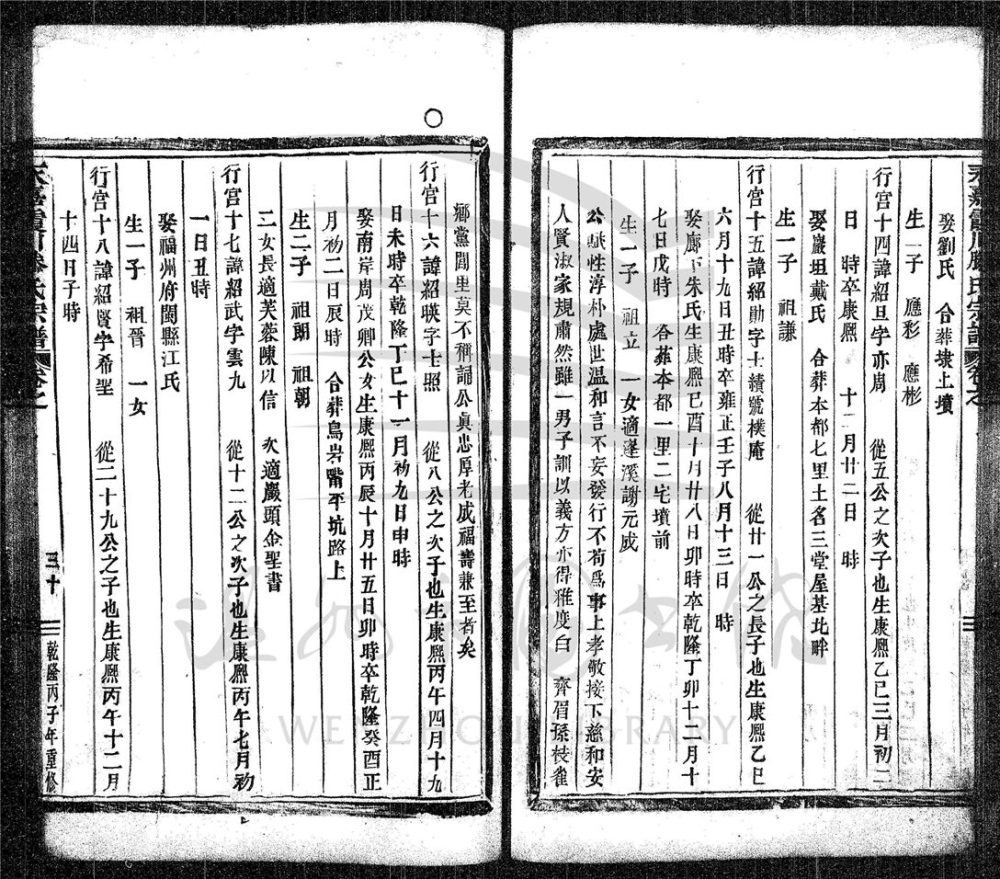 娶劉氏 合葬墺上墳
生二子 應彩 應彬
行宫十四諱紹旦字亦周 從五公之次子也生康熙乙巳三月初二
日 時卒康熙 十二月廿二日 時
娶巖坦戴氏 合葬本都七里土名三堂屋基北畔
生一子 祖謙
行宫十五諱紹勛字士績號樸庵 從廿一公之長子也生康熙乙巳
六月十九日丑時卒雍正壬子八月十三日 時
娶廊下朱氏生康熙己酉十月廿八日卯時卒乾隆丁卯十二月十
七日戊時 合葬本都一里二宅墳前
生一子 祖立 一女適蓬溪謝元威
公賦性淳朴處世温和言不妄發行不苟爲事上孝敬接下慈和安
人賢淑家規肅然雖一男子訓以義方亦得雅度白 齊眉孫枝雀
鄉黨閭里莫不稱誦公眞忠厚老成福壽兼至者矣
行宫十六諱紹暎字士照 從八公之次子也生康熙丙午四月十九
日未時卒乾隆丁巳十一月初九日申時
娶南岸周茂卿公女生康熙丙辰十月廿五日卯時卒乾隆癸酉正
月初二日辰時 合葬鳥岩嘴平坑路上
生二子 祖朗 祖朝
二女長適芙蓉陳以信 次適巖頭金聖書
行宫十七諱紹武字雲九 從十二公之次子也生康熙丙午七月初
一日丑時
娶福州府閩縣江氏
生一子 祖晉 一女
行宫十八諱紹賢字希聖 從二十九公之子也生康熙丙午十二月
十四日子時
三十
乾隆丙子年重修
WENZHOU LIBRARY